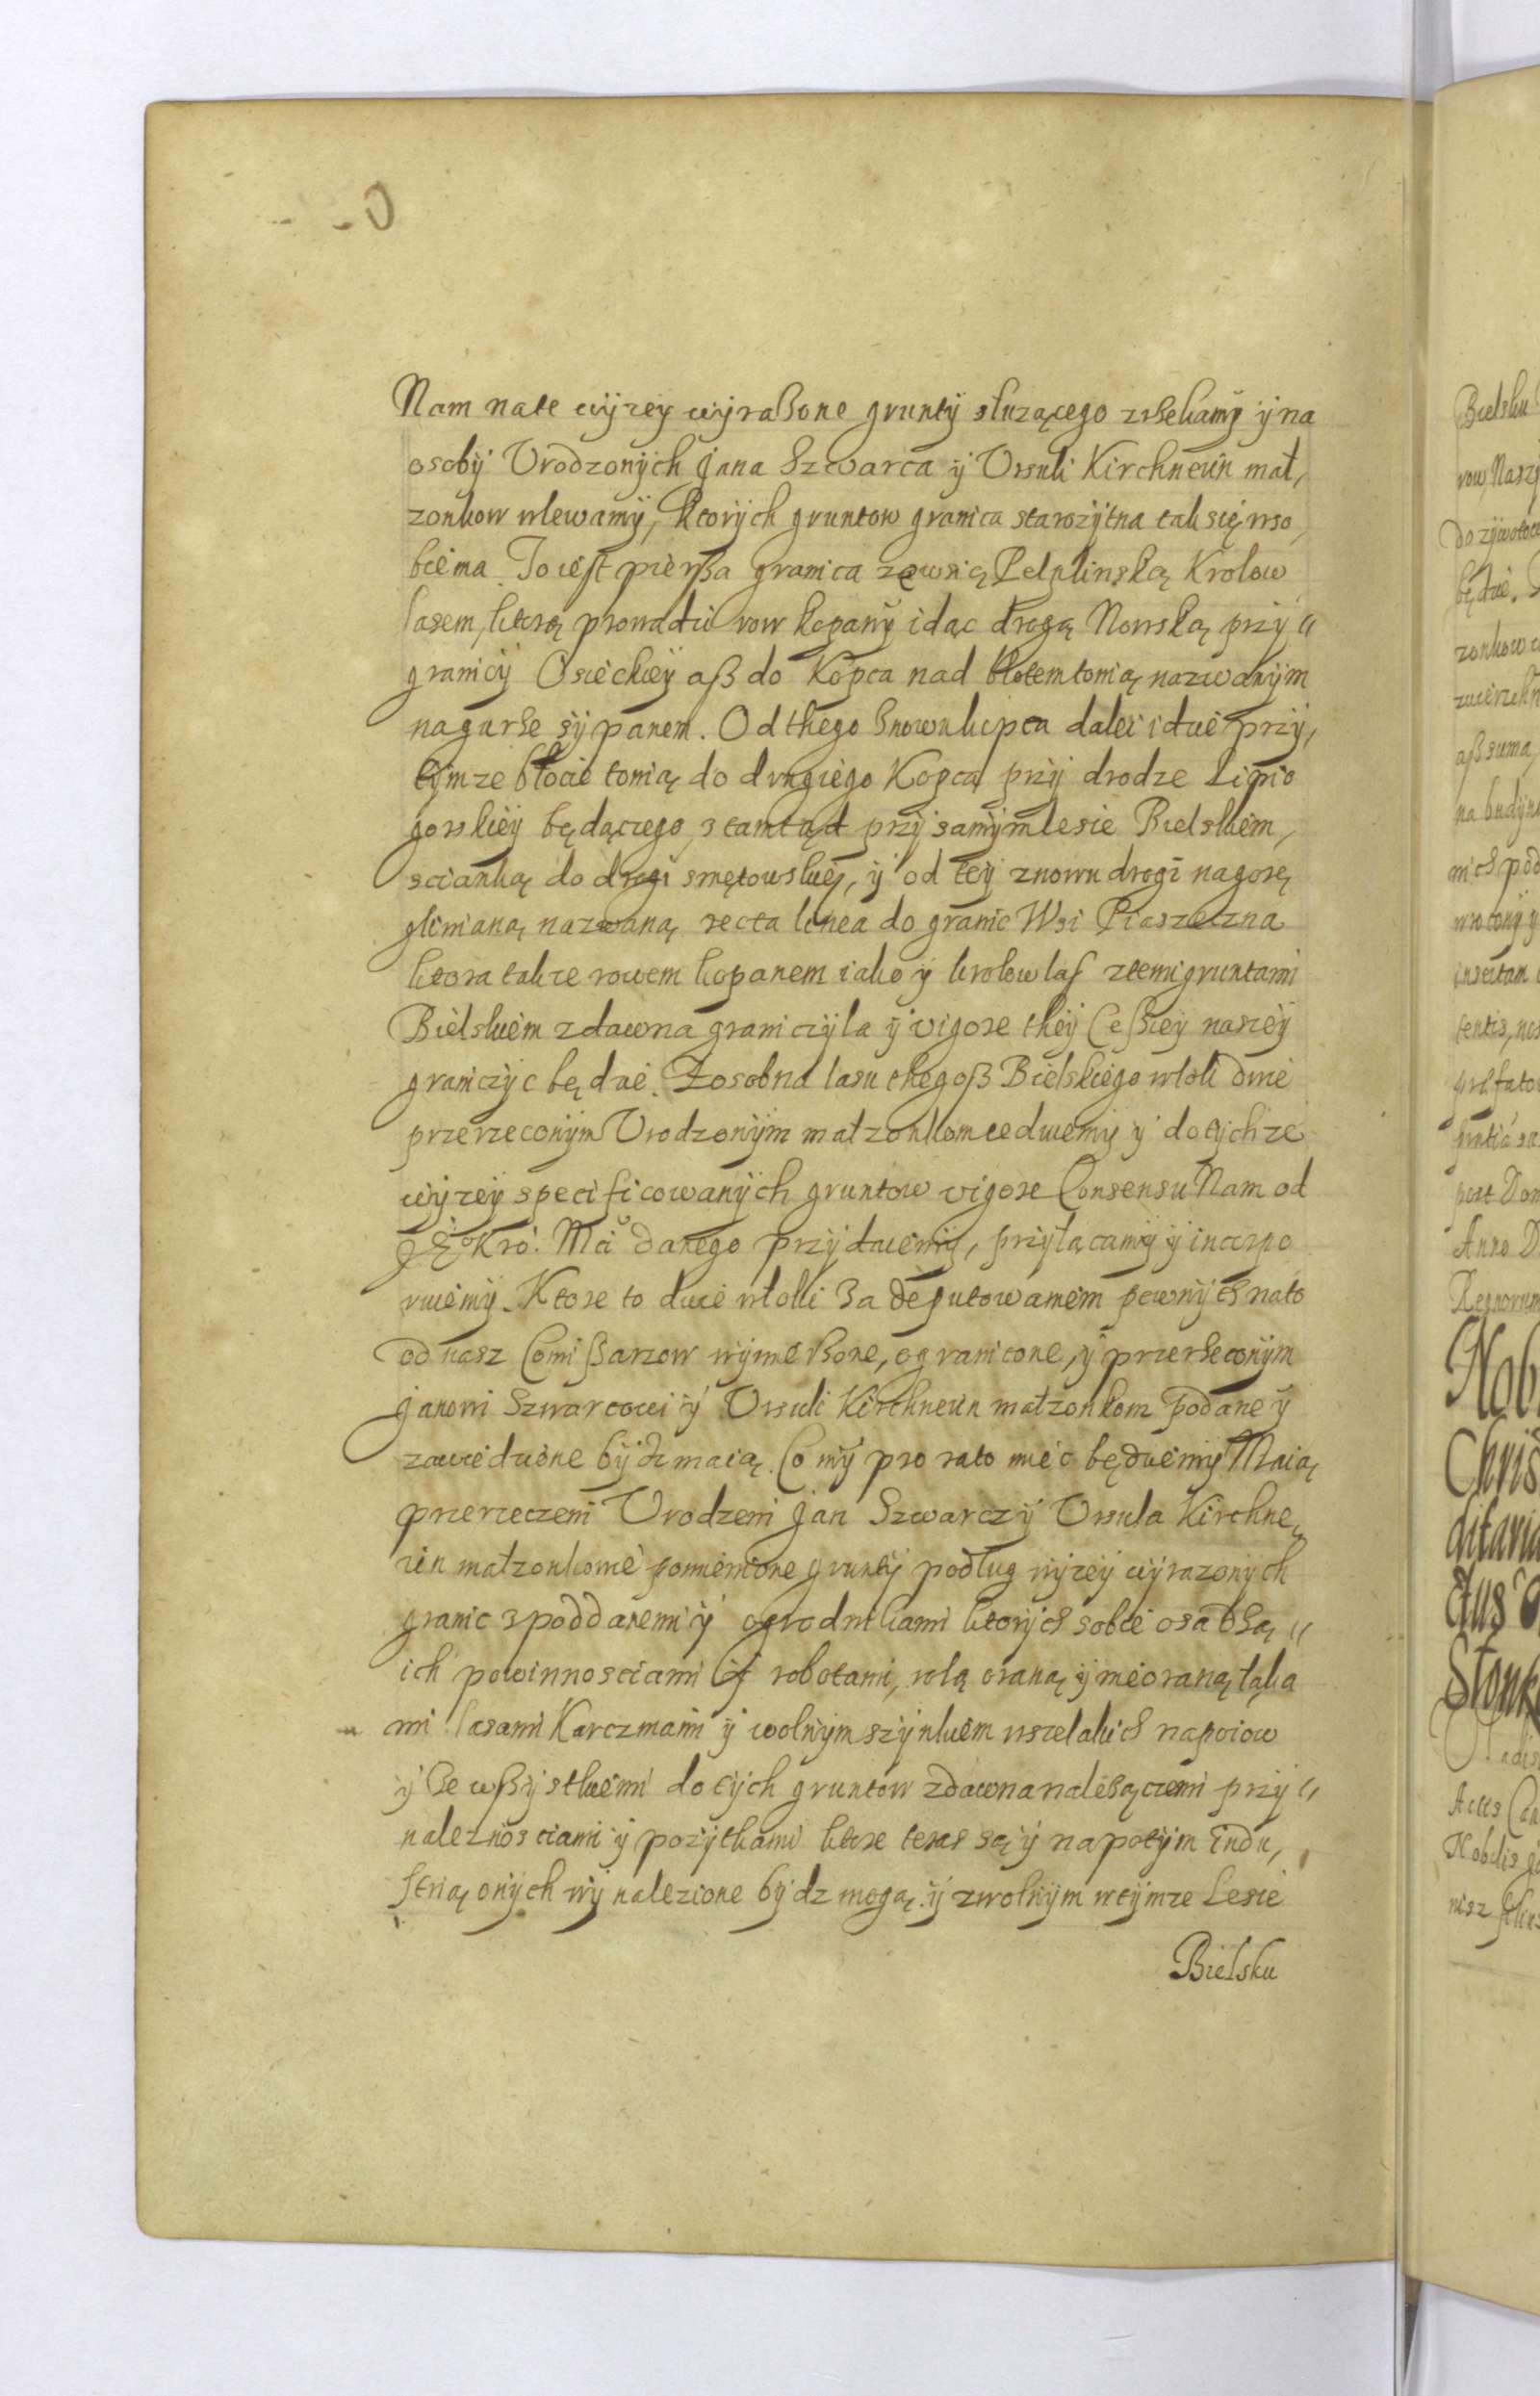 Nam nate wyzey wyraßone grunty sluzącego zrßekamy y na
osoby Vrodzonych Jana Szwarca y Vrsuli Kirchnerin mał,
zonkow wlewamy, ktorych gruntow granica starozytna tak się wso,
bie ma. To iest pierßa granica zewsią Pelplinską Krolow
lasem, ktorą prowadzi row kopany idąc drogą Nowską przy "
granicy Osieckiey aß do Kopca nad błotem tonią nazwanym
nagurße sypanem. Od thego ßnowu kopca daley idzie przy,
tymze błocie tonią do drugiego Kopca przy drodze Lipio
gorskiey będącego, stamtąd przy samym lesie Bielskiem,
scianką do drogi smętowskiey, y od tey znowu drogi nagorę
glinianą nazwaną recta linea do granic Wsi Piaszeczna
ktora takze rowem kopanem iako y krolow las ztemi gruntami
Bielskiem zdawna graniczyla y vigore they Cessiey naszey
graniczyc będzie. Zosobna lasu thegoß Bielskiego włoki dwie
przerzeconym Vrodzonym małzonkom cedniemy y dotychze
wyzey specificowanych gruntow vigore Consensu Nam od
JE Kro. Mci danego przydaiemy, przyłacamy y incorpo
ruiemy. Ktore to dwie włoki ßa deputowaniem pewnych nato
od nasz Comißarzow wymierßone, ogranicone, y przerßeconym
Janowi Szwarcowi y Vrsuli Kirchnerin małzonkom podane y
zawiedzione bydz maią. Co my pro rato miec będziemy Maią
przerzeczeni Vrodzeni Jan Szwarcz y Vrsula Kirchne,
rin małzonkowie pomienione grunty podług wyzey wyrazonych
granic z poddanemi y ogrodnikami ktorych sobie osadßą "
ich powinnosciami y robotami, rolą oraną y nieoraną łąka
mi lasami Karczmami y wolnym szynkiem wszelakich napoiow
y ße wßystkiemi do tych gruntow zdawna naleßączemi przy "
naleznosciami y pozytkami ktore teras są y napotym indu,
strią onych wynalezione bydz mogą. y zwolnym wtymze Lesie
Bielsku